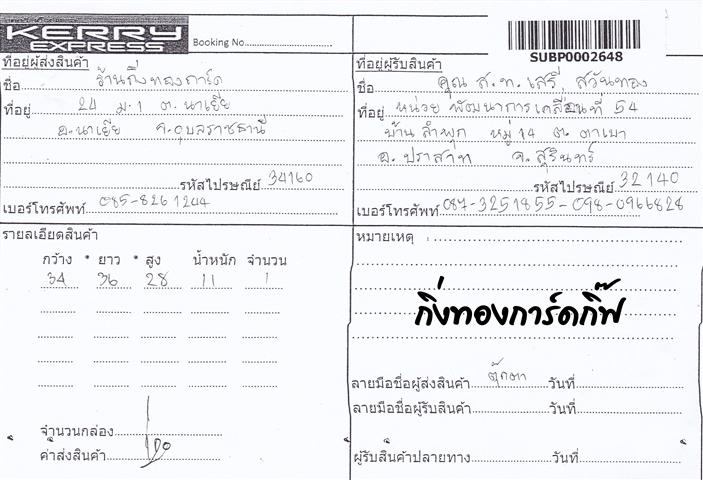 KERRY EXPRESS
Booking No.
SUBP0002648
ที่อยู่ผู้ส่งสินค้า
ชื่อ ร้านกิ่งทองการ์ด
ที่อยู่ 24 ม.1 ต.นาเยีย
อ.นาเยีย จ.อุบลราชธานี
รหัสไปรษณีย์ 34160
เบอร์โทรศัพท์ 085-8261244
ที่อยู่ผู้รับสินค้า
ชื่อ คุณ ส.ท. เสรี สวันทอง
ที่อยู่ หน่วย พัฒนาการเคลื่อนที่ 54
บ้าน ลำพุก หมู่ 14 ต. ตาเบา
อ. ปราสาท จ. สุรินทร์
รหัสไปรษณีย์ 32140
เบอร์โทรศัพท์ 087-3251855-098-0966828
รายลเอียดสินค้า
กว้าง * ยาว * สูง น้ำหนัก จำนวน
34 36 28 11 1
จำนวนกล่อง 1
ค่าส่งสินค้า
หมายเหตุ :
กิ่งทองการ์ดกิ๊ฟ
ลายมือชื่อผู้ส่งสินค้า ตุ๊กตา วันที่
ลายมือชื่อผู้รับสินค้า วันที่
ผู้รับสินค้าปลายทาง วันที่